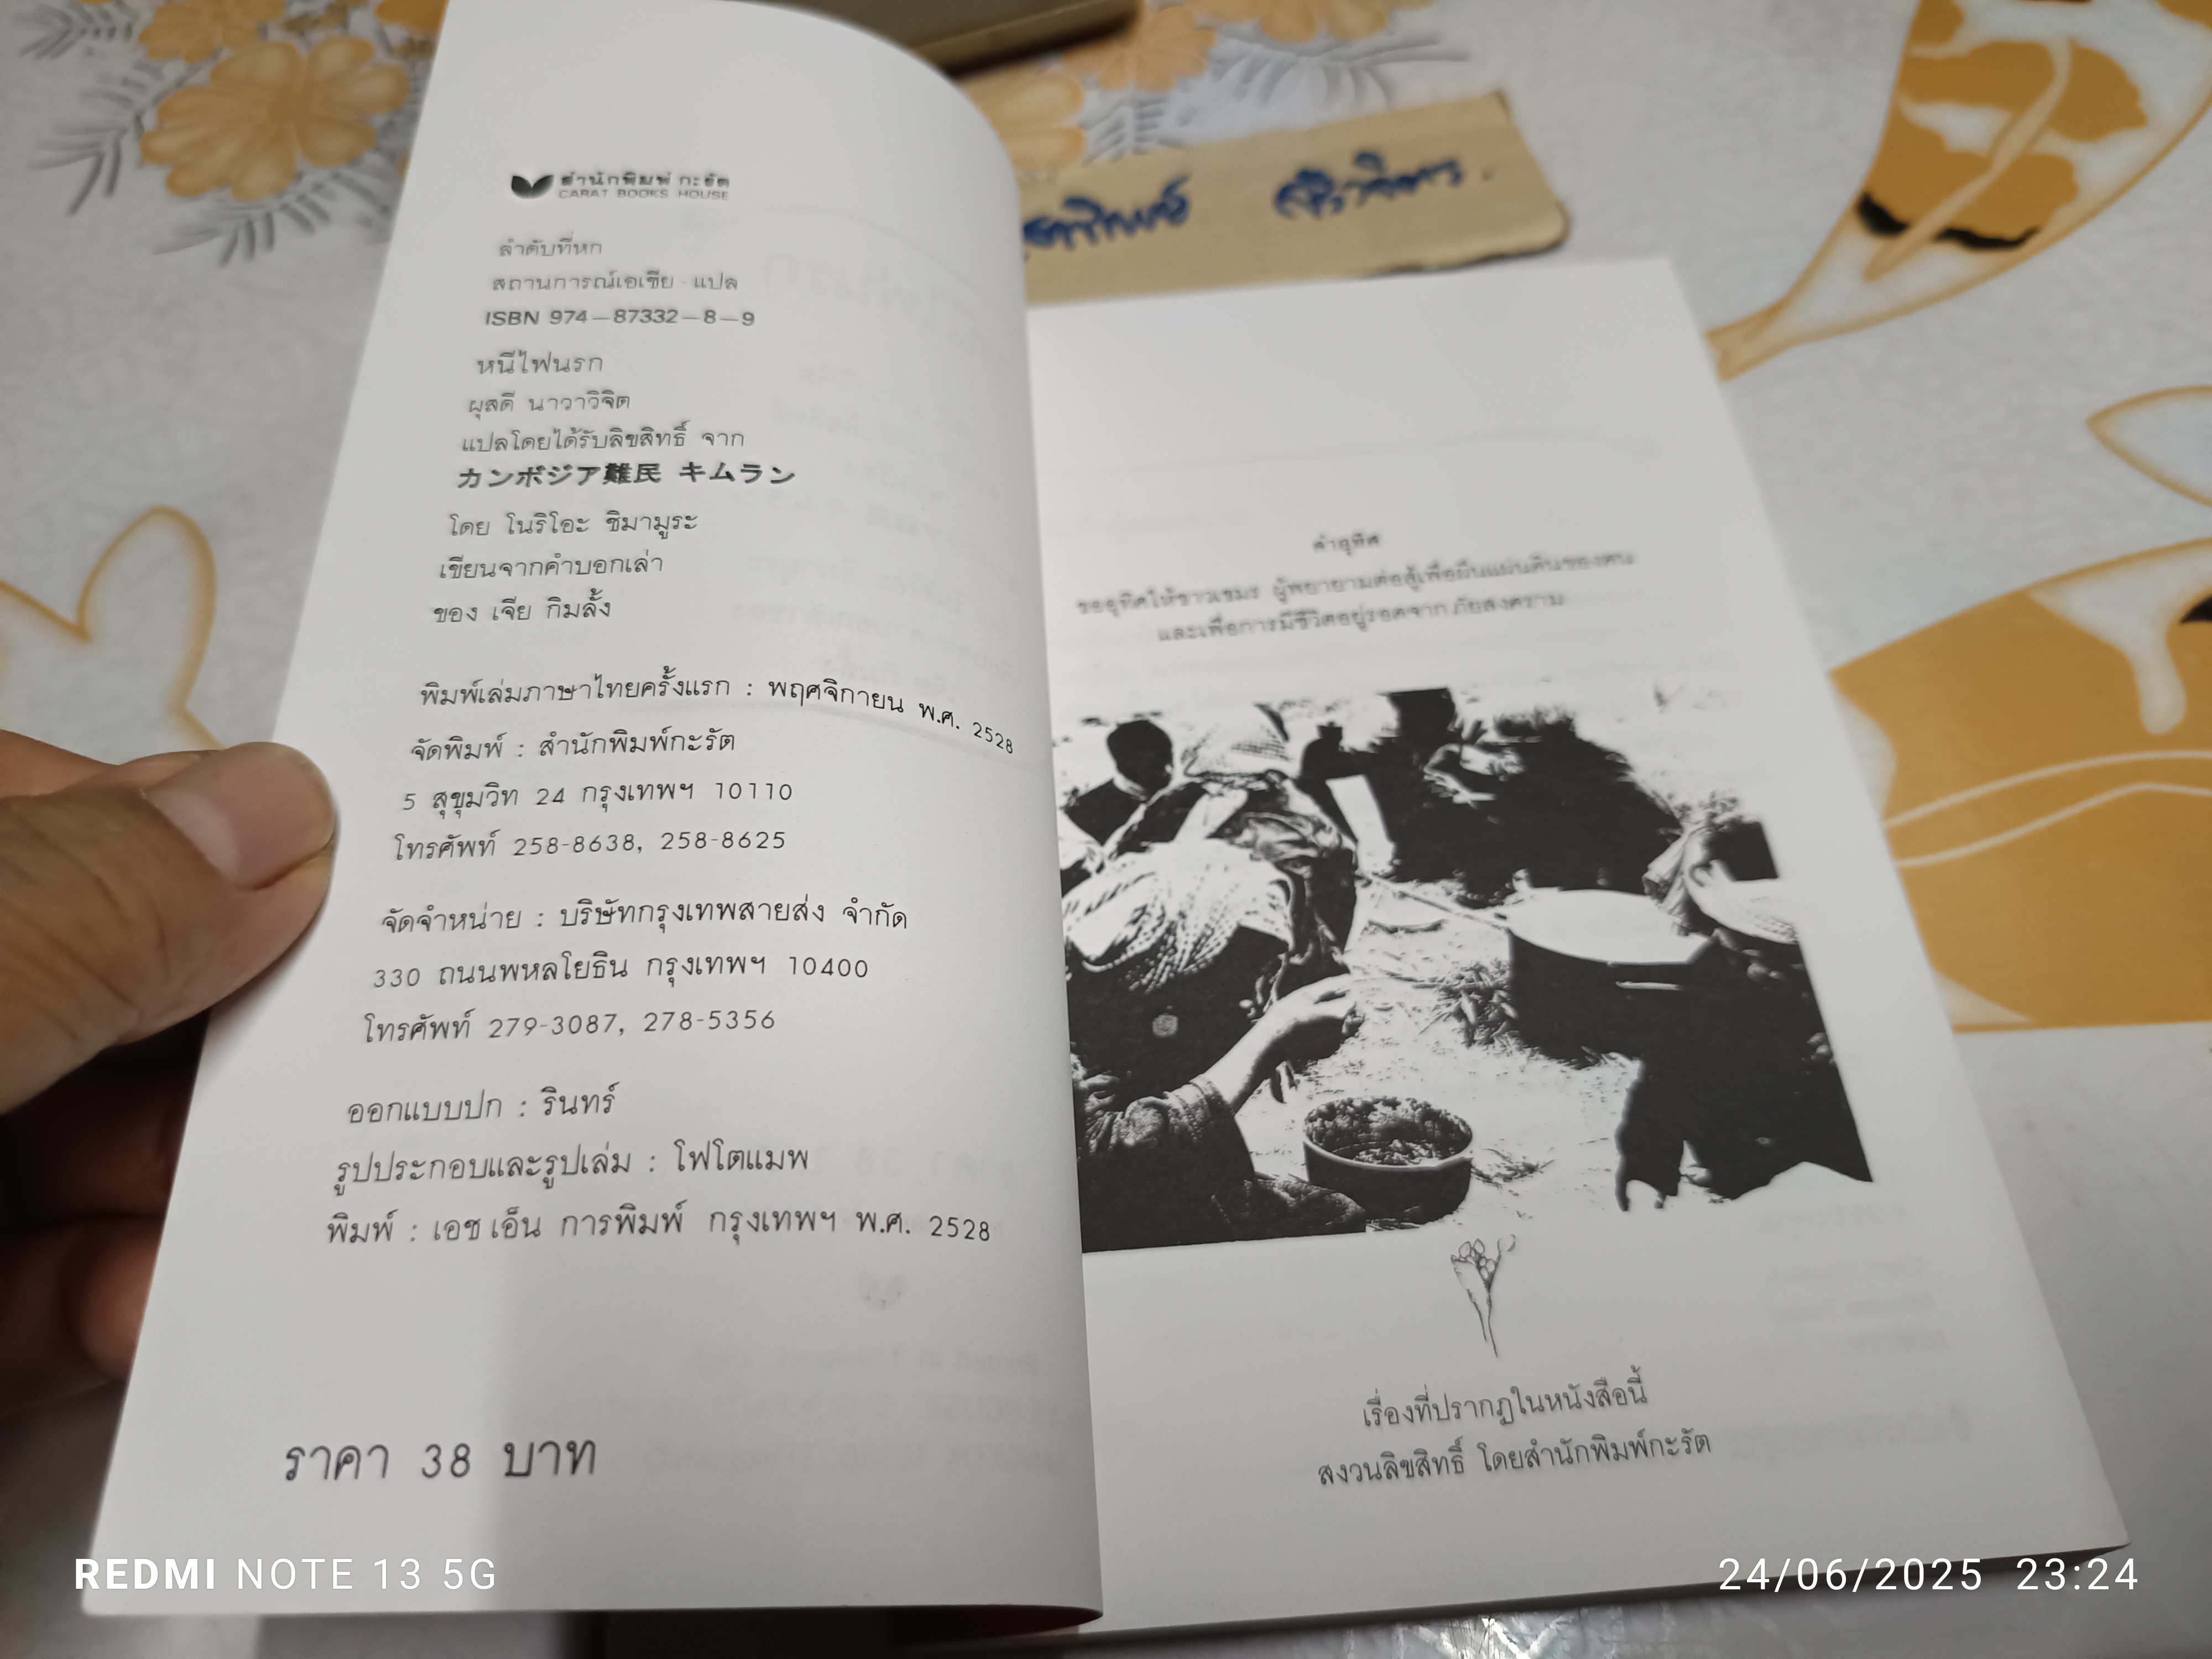 สำนักพิมพ์ กะรัต
CARAT BOOKS HOUSE
ลำดับที่หก
สถานการณ์เอเชีย - แปล
ISBN 974-87332-8-9
หนีไฟนรก
ผุสดี นาวาวิจิต
แปลโดยได้รับลิขสิทธิ์ จาก
カンボジア難民 キムラン
โดย โนริโอะ ชิมามูระ
เขียนจากคำบอกเล่า
ของ เจีย กิมลั้ง
พิมพ์เล่มภาษาไทยครั้งแรก : พฤศจิกายน พ.ศ. 2528
จัดพิมพ์ : สำนักพิมพ์กะรัต
5 สุขุมวิท 24 กรุงเทพฯ 10110
โทรศัพท์ 258-8638, 258-8625
จัดจำหน่าย : บริษัทกรุงเทพสายส่ง จำกัด
330 ถนนพหลโยธิน กรุงเทพฯ 10400
โทรศัพท์ 279-3087, 278-5356
ออกแบบปก : รินทร์
รูปประกอบและรูปเล่ม : โฟโตแมพ
พิมพ์ : เอช เอ็น การพิมพ์ กรุงเทพฯ พ.ศ. 2528
ราคา 38 บาท
คำอุทิศ
ขออุทิศให้ชาวเขมร ผู้พยายามต่อสู้เพื่อผืนแผ่นดินของตน
และเพื่อการมีชีวิตอยู่รอดจากภัยสงคราม
เรื่องที่ปรากฏในหนังสือนี้
สงวนลิขสิทธิ์ โดยสำนักพิมพ์กะรัต
REDMI NOTE 13 5G
24/06/2025 23:24